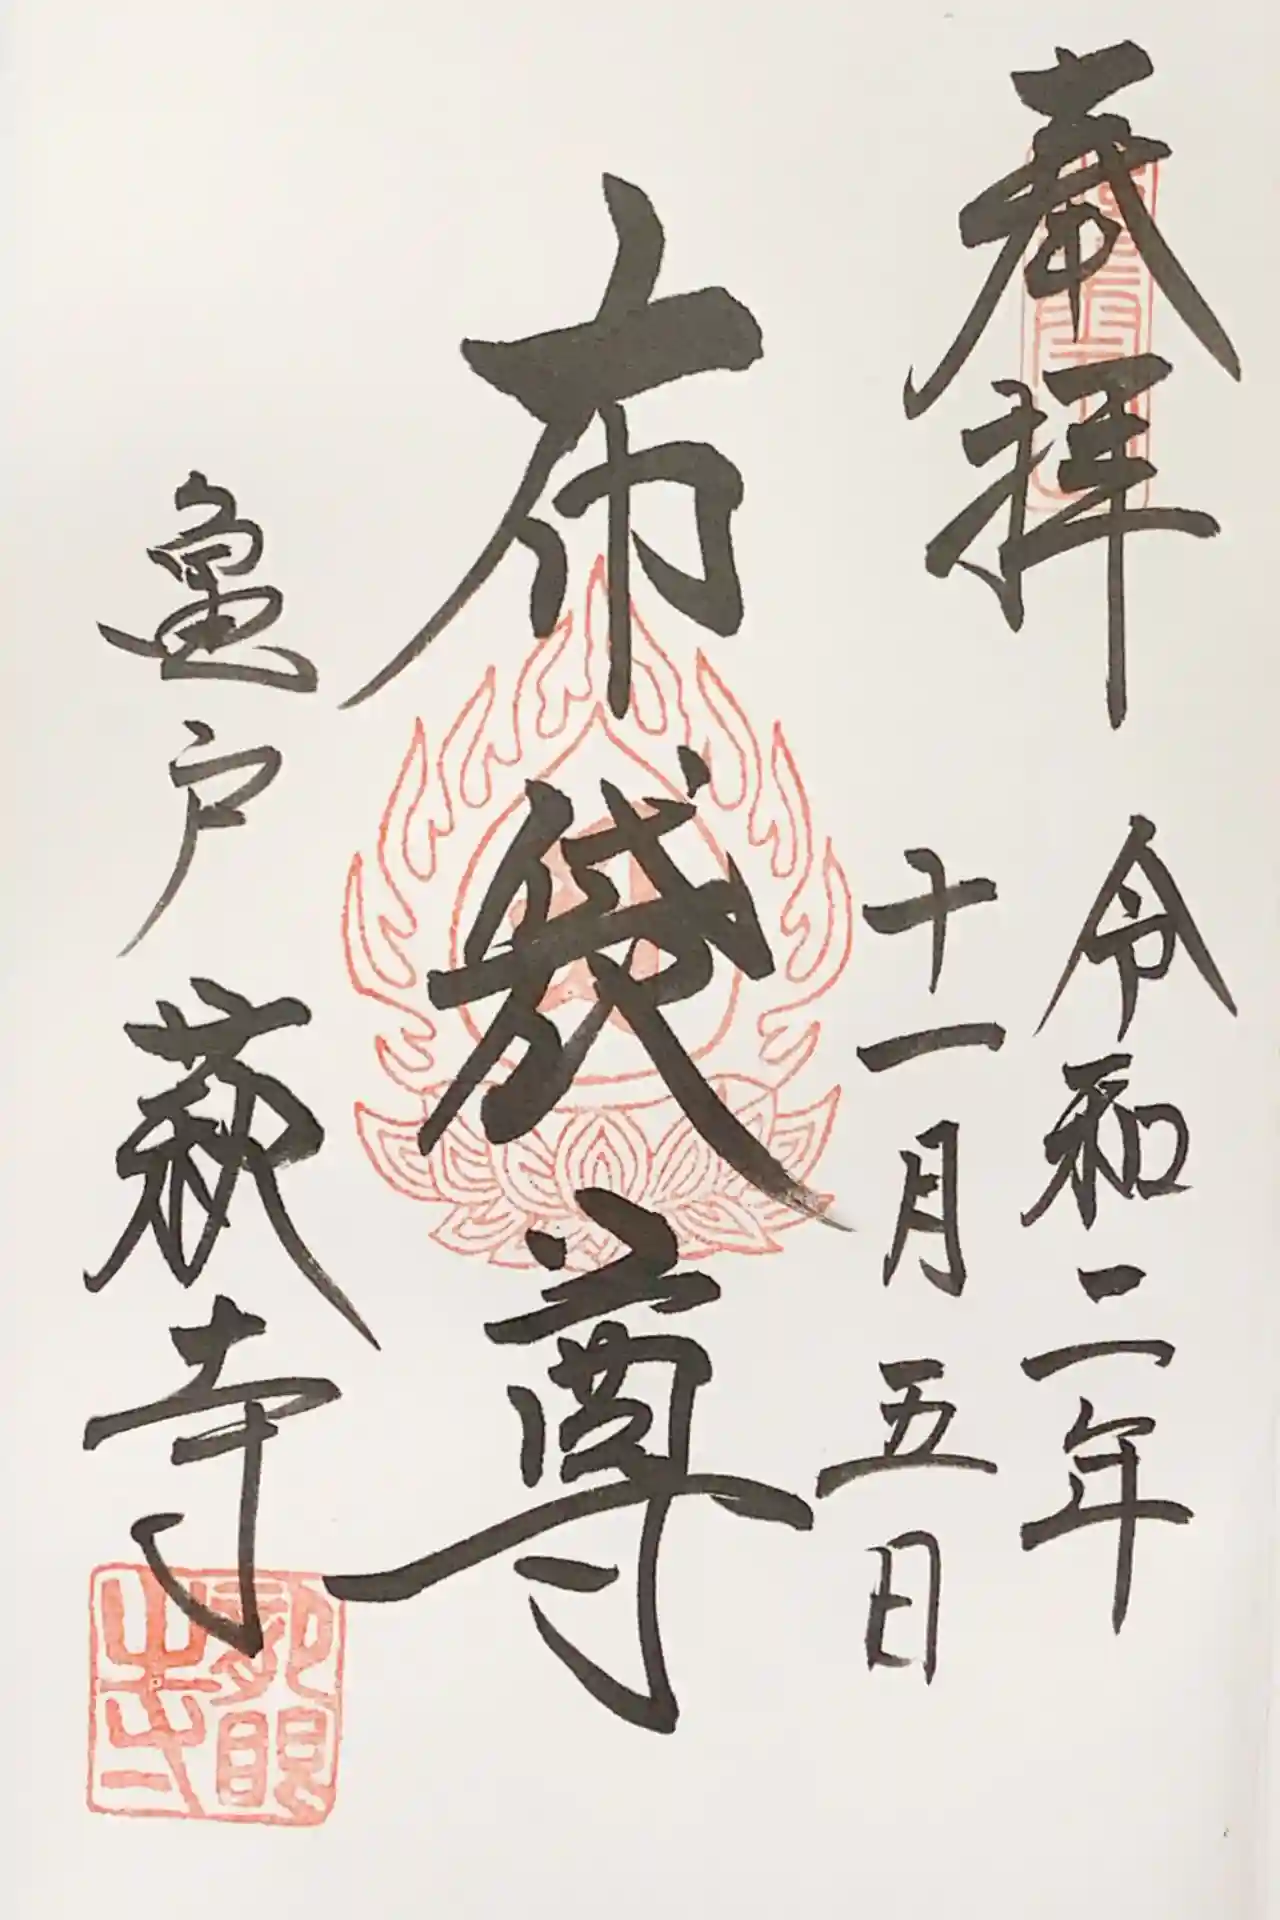 奉拝
令和二年
十一月五日
布袋尊
亀戸
萩寺